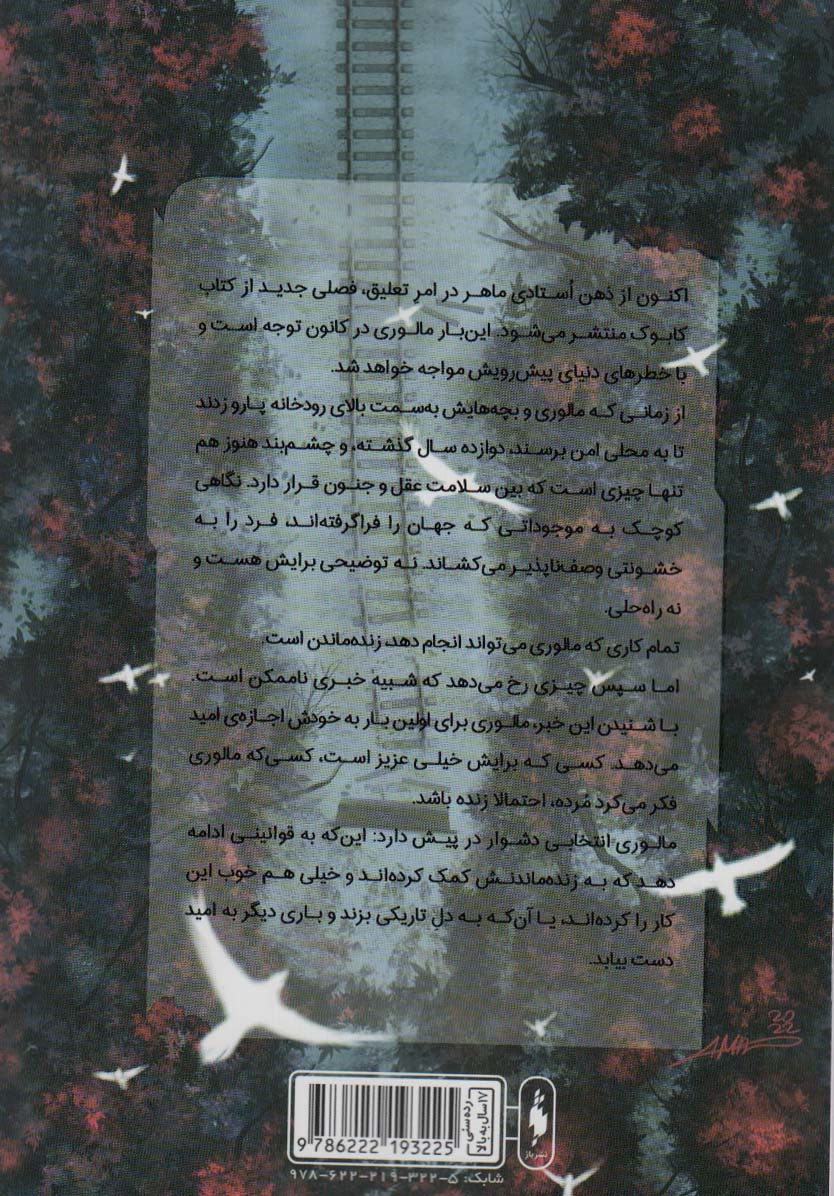 اکنون از ذهن اُستادی ماهر در امرِ تعلیق، فصلی جدید از کتاب
کابوک منتشر می‌شود. این‌بار مالوری در کانون توجه است و
با خطرهای دنیای پیش‌رویش مواجه خواهد شد.
از زمانی که مالوری و بچه‌هایش به‌سمت بالای رودخانه پارو زدند
تا به محلی امن برسند، دوازده سال گذشته، و چشم‌بند هنوز هم
تنها چیزی است که بین سلامت عقل و جنون قرار دارد. نگاهی
کوچک به موجوداتی که جهان را فراگرفته‌اند، فرد را به
خشونتی وصف‌ناپذیر می‌کشاند. نه توضیحی برایش هست و
نه راه‌حلی.
تمام کاری که مالوری می‌تواند انجام دهد، زنده‌ماندن است.
اما سپس چیزی رخ می‌دهد که شبیه خبری ناممکن است.
با شنیدن این خبر، مالوری برای اولین بار به خودش اجازه‌ی امید
می‌دهد. کسی که برایش خیلی عزیز است، کسی‌که مالوری
فکر می‌کرد مُرده، احتمالا زنده باشد.
مالوری انتخابی دشوار در پیش دارد: این‌که به قوانینی ادامه
دهد که به زنده‌ماندنش کمک کرده‌اند و خیلی هم خوب این
کار را کرده‌اند، یا آن‌که به دلِ تاریکی بزند و باری دیگر به امید
دست بیابد.
2022
رده سنی
۱۷ سال به بالا
نشر باژ
9 786222 193225
شابک: ۵-۳۲۲-۲۱۹-۶۲۲-۹۷۸